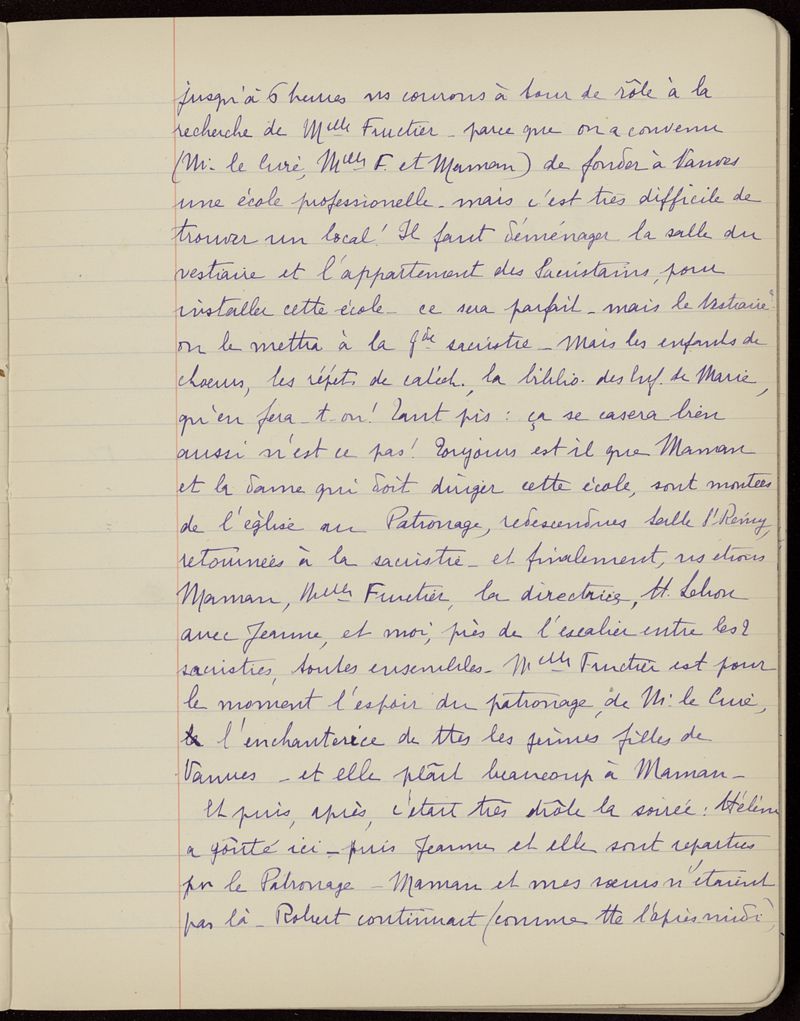 jusqu'à 6 heures ns courons à tour de rôle à la
recherche de Melle Fructier - parce que on a convenu
(M. le Curé, Melle F. et Maman) de fonder à Vanves
une école professionelle - mais c'est très difficile de
trouver un local! Il faut déménager la salle du
vestiaire et l'appartement des Sacristains, pour
installer cette école - ce sera parfait - mais le Vestiaire?
on le mettra à la gde sacristie - Mais les enfants de
choeurs, les répét. de catéch., la biblio. des Enf. de Marie,
qu'en fera-t-on! Tant pis : ça se casera bien
aussi n'est ce pas! Toujours est il que Maman
et la dame qui doit diriger cette école, sont montées
de l'église au Patronage, redescendues Salle St Rémy,
retournées à la sacristie - et finalement, ns étions
Maman, Melle Fructier, la directrice, H. Lebon
avec Jeanne, et moi, près de l'escalier entre les 2
sacristies, toutes ensembles - Melle Fructier est pour
le moment l'espoir du patronage, de M. le Curé,
l'enchanterice de ttes les jeunes filles de
Vanves - et elle plaît beaucoup à Maman -
Et puis, après, c'était très drôle la soirée : Hélène
a goûté ici - puis Jeanne et elle sont reparties
pr le Patronage - Maman et mes soeurs n'étaient
pas là - Robert continuait (comme tte l'après midi)